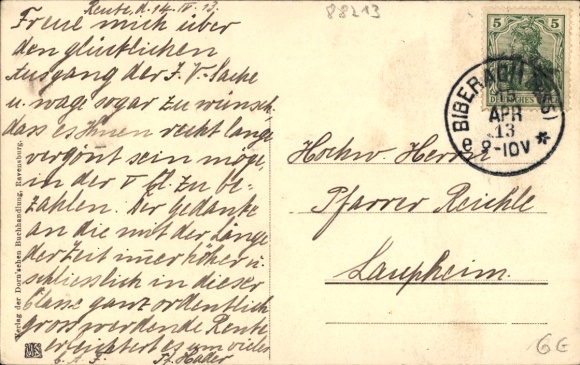 Reute, d. 14. IV. 13.
88213
Freue mich über
den glücklichen
Ausgang der J. V.-Sache
u. wage sogar zu wünsch.
dass es Ihnen recht lange
vergönt sein möge,
in der V Cl. zu be-
zahlen. Der Gedanke
an die mit der Länge
der Zeit imer höher u.
schliesslich in dieser
Classe ganz ordentlich
gross werdende Rente
erleichtert es um vieles
Fr. Hader
5
5
DEUTSCHES
BIBERACH
APR
13
9-10V
e
Hochw. Herrn
Pfarrer Reichle
Laupheim.
Verlag der Dorn'schen Buchhandlung, Ravensburg.
6€